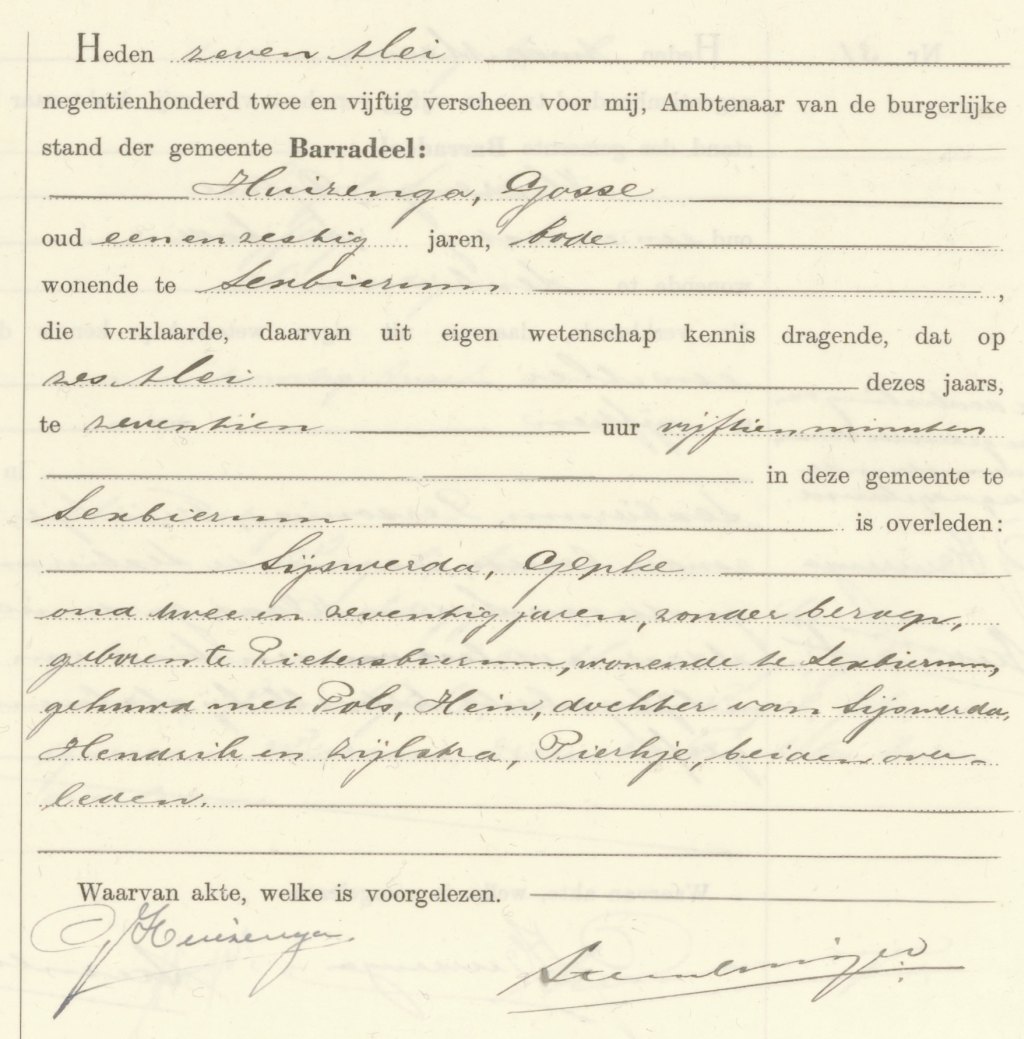 Heden zeven Mei
negentienhonderd twee en vijftig verscheen voor mij, Ambtenaar van de burgerlijke
stand der gemeente Barradeel:
Huizenga, Gosse
oud een en zestig jaren, bode
wonende te Sexbierum,
die verklaarde, daarvan uit eigen wetenschap kennis dragende, dat op
zes Mei dezes jaars,
te zeventien uur vijftien minuten
in deze gemeente te
Sexbierum is overleden:
Sijswerda, Gepke
oud twee en zeventig jaren, zonder beroep,
geboren te Pietersbierum, wonende te Sexbierum,
gehuwd met Pols, Hein, dochter van Sijswerda,
Hendrik en Zijlstra, Pierkje, beiden over-
leden.
Waarvan akte, welke is voorgelezen.
G Huizenga